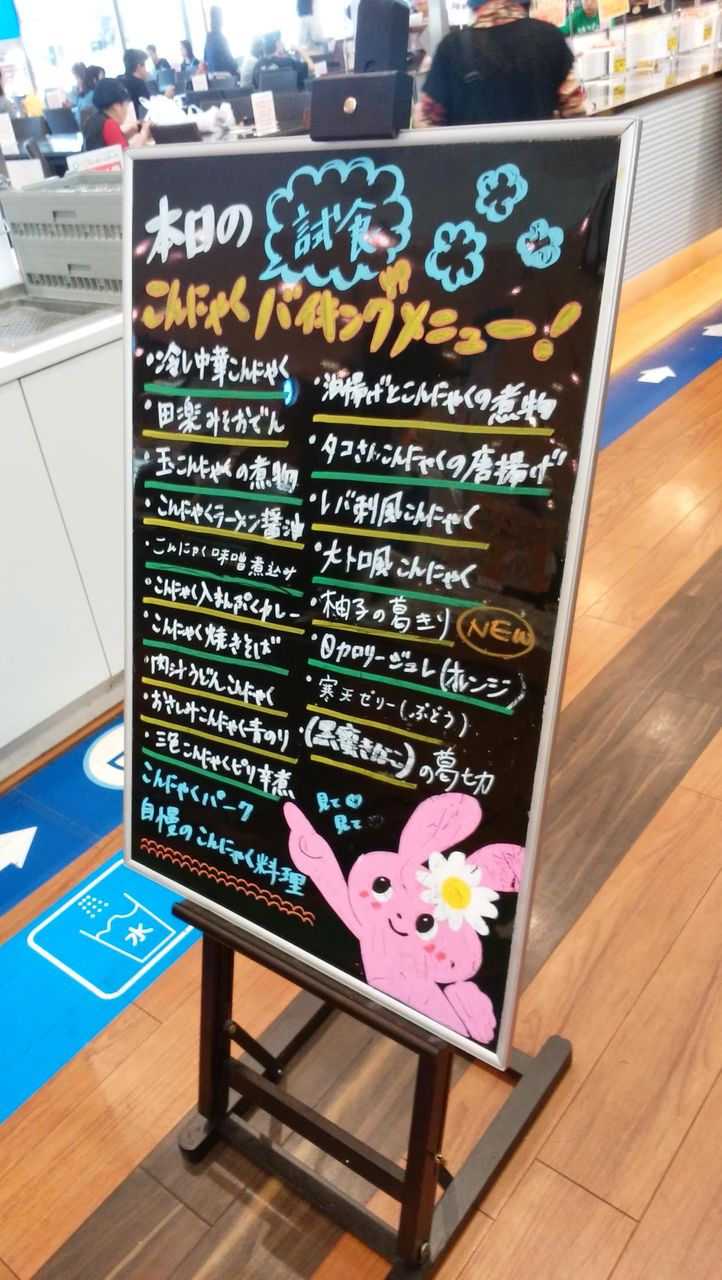 本日の試食
こんにゃくバイキングメニュー！
・冷し中華こんにゃく
・田楽みそおでん
・玉こんにゃくの煮物
・こんにゃくラーメン醤油
・こんにゃく味噌煮込み
・こんにゃく入まんぷくカレー
・こんにゃく焼きそば
・肉汁うどんこんにゃく
・おさしみこんにゃく青のり
・三色こんにゃくピリ辛煮
・油揚げとこんにゃくの煮物
・タコさんこんにゃくの唐揚げ
・レバ刺風こんにゃく
・大トロ風こんにゃく
・柚子の葛きり NEW
・0カロリージュレ(オレンジ)
・寒天ゼリー(ぶどう)
・(黒蜜きなこ)の葛切
こんにゃくパーク
自慢のこんにゃく料理
見て
見て
水